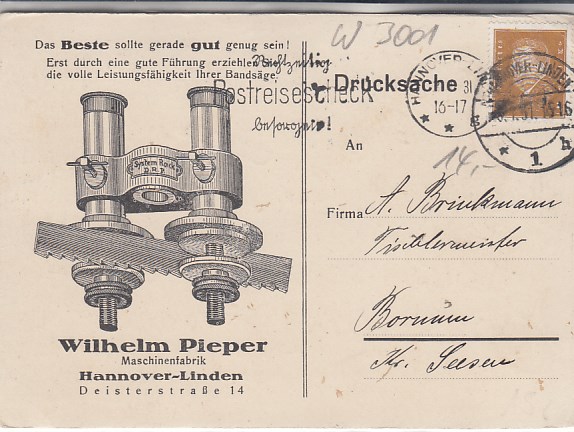 W 3001
Das Beste sollte gerade gut genug sein!
Erst durch eine gute Führung erziehlen Sie
die volle Leistungsfähigkeit Ihrer Bandsäge.
Rechtzeitig
Postreisescheck
besorgen!
Drucksache
HANNOVER-LINDEN
31
16-17
HANNOVER-LINDEN
* 1 h
14,-
System Rock
D.R.P.
An
Firma A. Brinkmann
Tischlermeister
Bornum
Kr. Seesen
Wilhelm Pieper
Maschinenfabrik
Hannover-Linden
Deisterstraße 14